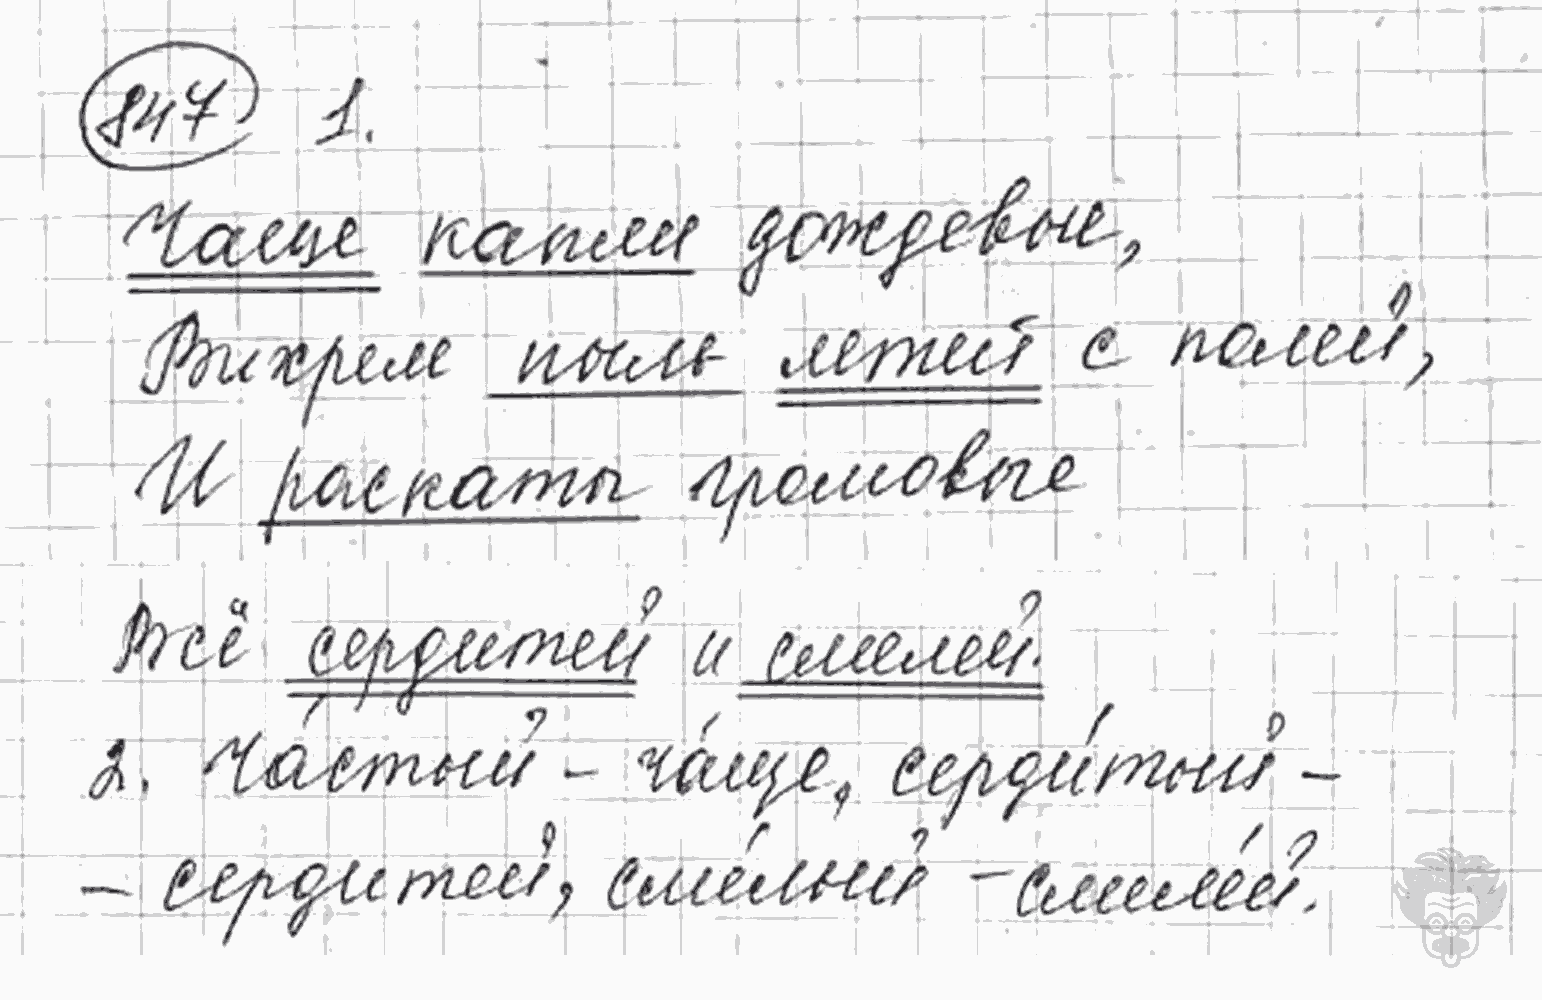 847 1.
Чаще капли дождевые,
Вихрем пыль летит с полей,
И раскаты громовые
Всё сердитей и смелей.
2. Ча́стый – ча́ще, серди́тый –
– сердитей, сме́лый – смеле́й.